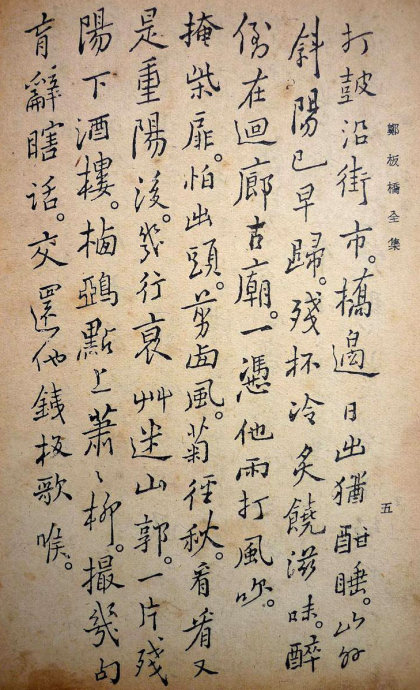 鄭板橋全集
五
打皷沿街市。橋邊日出猶酣睡。山外
斜陽已早歸。殘杯冷炙饒滋味。醉
倒在迴廊古廟。一憑他雨打風吹。
掩柴扉。怕出頭。剪卥風。菊徑秋。看看又
是重陽後。幾行衰艸迷山郭。一片殘
陽下酒樓。栖鵶點上蕭〻柳。撮幾句
盲辭瞎话。交還他鐵板歌喉。